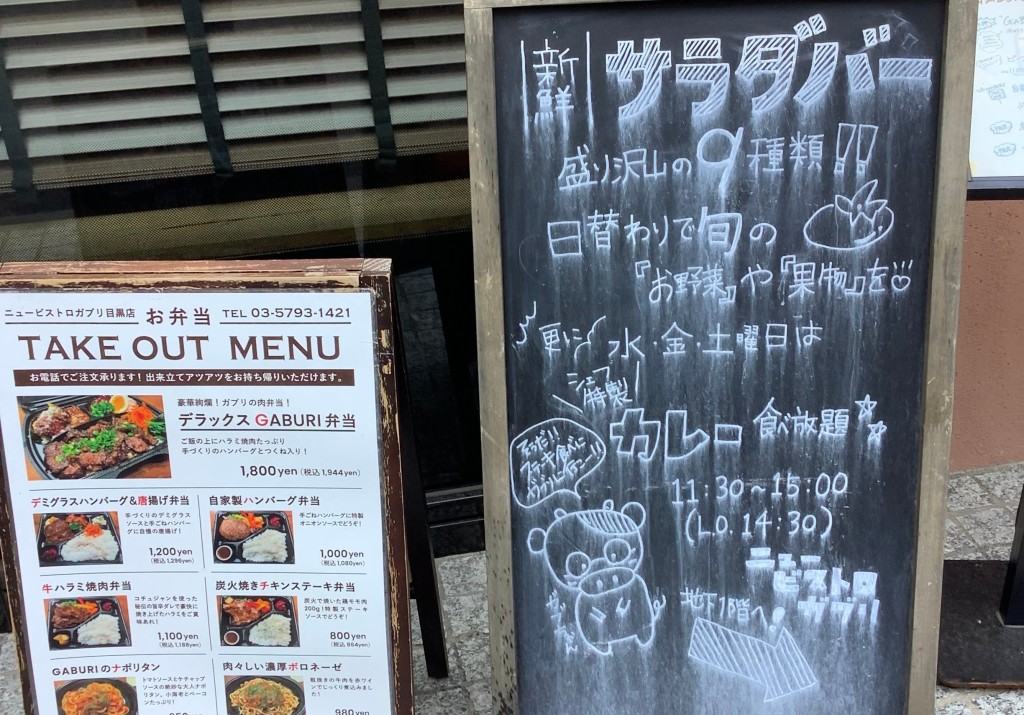 ニュービストロガブリ目黒店 お弁当 TEL 03-5793-1421
TAKE OUT MENU
お電話でご注文承ります！出来立てアツアツをお持ち帰りいただけます。
豪華絢爛！ガブリの肉弁当！
デラックス GABURI 弁当
ご飯の上にハラミ焼肉たっぷり
手づくりのハンバーグとつくね入り！
1,800yen (税込 1,944yen)
デミグラスハンバーグ&唐揚げ弁当
手づくりのデミグラス
ソースと手ごねハンバー
グに自慢の唐揚げ！
1,200yen
(税込 1,296yen)
自家製ハンバーグ弁当
手ごねハンバーグに特製
オニオンソースでどうぞ！
1,000yen
(税込 1,080yen)
牛ハラミ焼肉弁当
コチュジャンを使った
秘伝の旨辛ダレで豪快に
焼き上げたハラミをご賞
味あれ！
1,100yen
(税込 1,188yen)
炭火焼きチキンステーキ弁当
炭火で焼いた鶏モモ肉
200g！特製ステーキ
ソースでどうぞ！
800yen
(税込 864yen)
GABURIのナポリタン
トマトソースとケチャップ
ソースの絶妙な大人ナポ
リタン。小海老とベーコ
ンたっぷり！
肉々しい濃厚ボロネーゼ
粗挽きの牛肉を赤ワイ
ンでじっくり煮込みまし
た！
980yen
新鮮 サラダバー
盛り沢山の9種類!!
日替わりで旬の
『お野菜』や『果物』を♡
更に 水・金・土曜日は
シェフ特製
カレー 食べ放題☆
11:30〜15:00
(L.O.14:30)
ニュービストロ
ガブリ
地下1階へ!